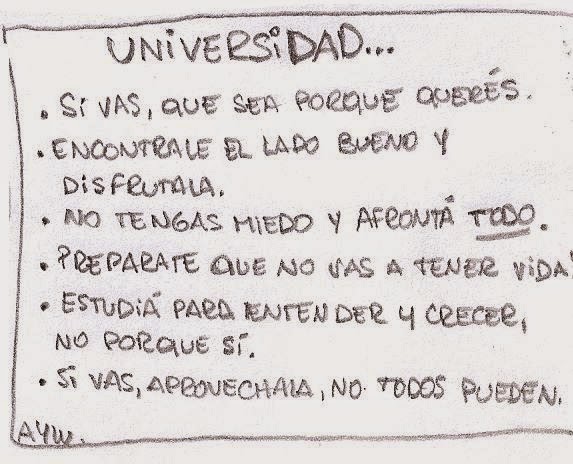 UNIVERSIDAD...
• SI VAS, QUE SEA PORQUE QUERÉS.
• ENCONTRALE EL LADO BUENO Y
DISFRUTALA.
• NO TENGAS MIEDO Y AFRONTÁ TODO.
• PREPARATE QUE NO VAS A TENER VIDA!
• ESTUDIÁ PARA ENTENDER Y CRECER,
NO PORQUE SÍ.
• SI VAS, APROVECHALA, NO TODOS PUEDEN.